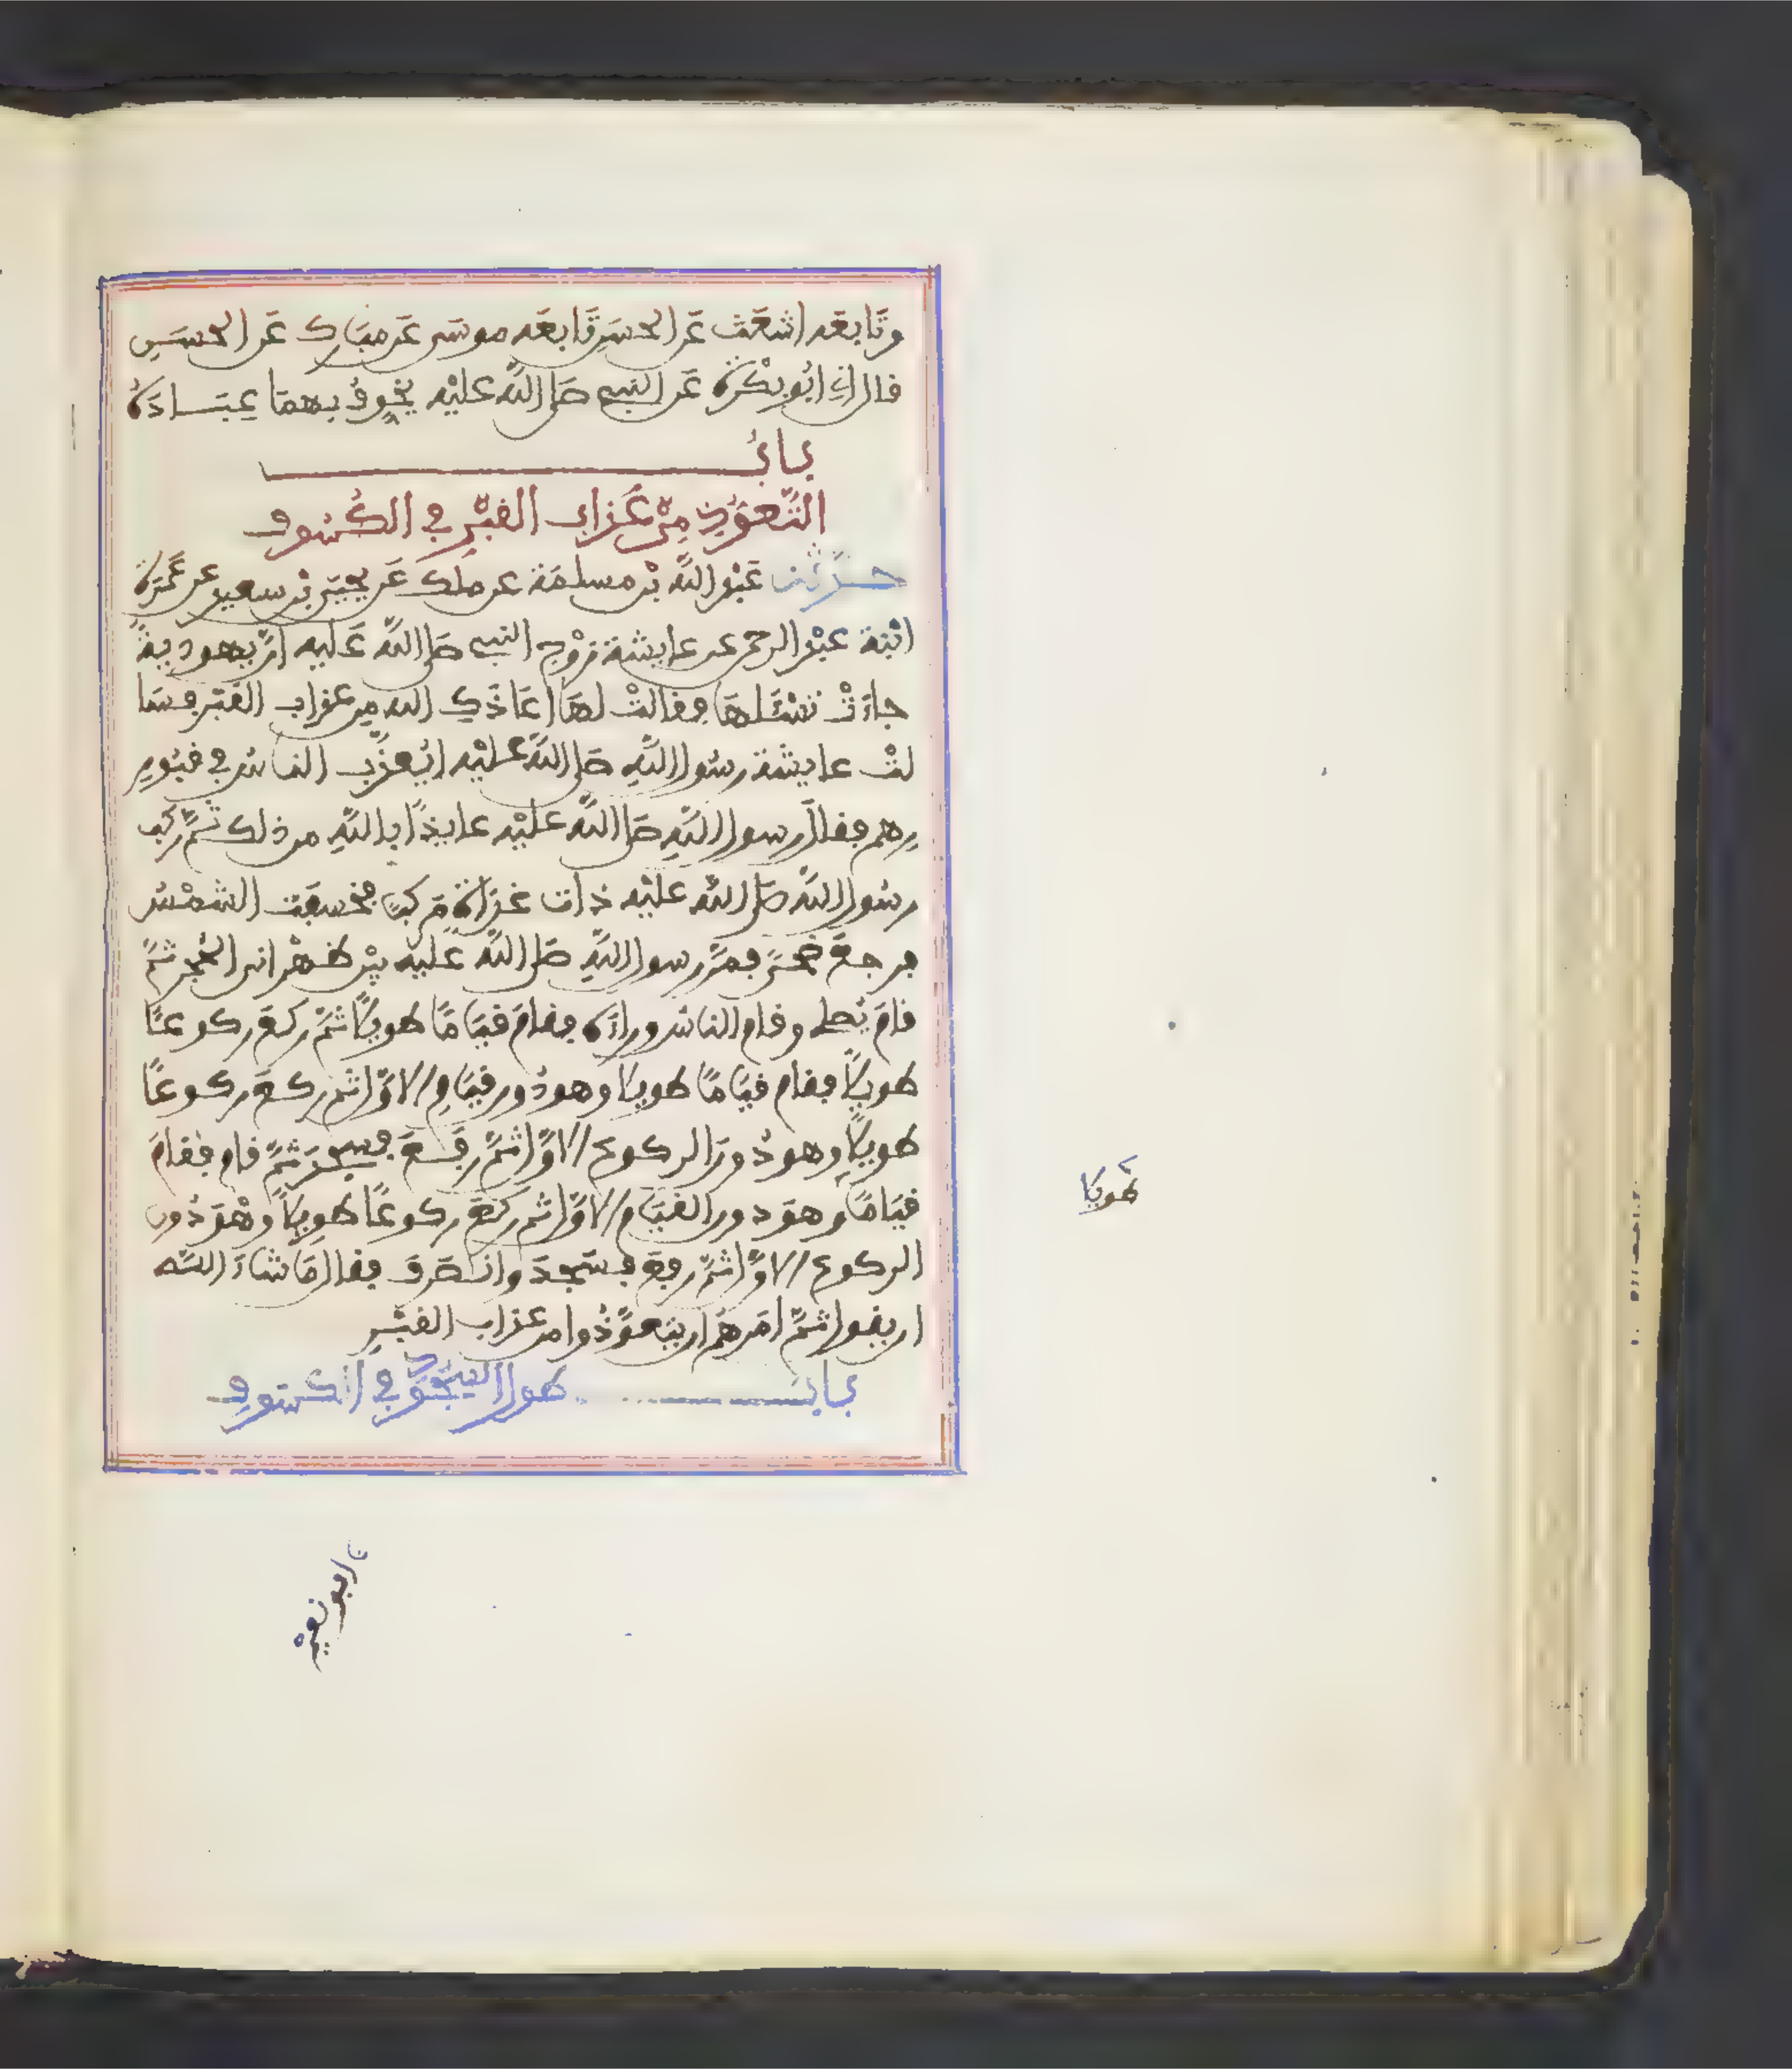 وتابعه اشعث عن الحسن تابعه موسى عن مبارك عن الحسن
قال اني ابو بكرة عن النبي صلى الله عليه يخوف بهما عباده
باب
التعوذ من عذاب القبر في الكسوف
حدثنا عبد الله بن مسلمة عن ملك عن يحيى بن سعيد عن عمرة
ابنة عبد الرحمن عن عايشة زوج النبي صلى الله عليه ان يهودية
جاءت تسئلها فقالت لها اعاذك الله من عذاب القبر فسا
لت عايشة رسول الله صلى الله عليه ايعذب الناس في قبور
رهم فقال رسول الله صلى الله عليه عايذا بالله من ذلك ثم ركب
رسول الله صلى الله عليه ذات غداة مركبا فخسفت الشمس
فرجع ضحى فمر رسول الله صلى الله عليه بين ظهراني الحجر ثم
قام يصلي وقام الناس وراءه فقام قياما طويلا ثم ركع ركوعا
طويلا فقام قياما طويلا وهو دون قيام الاول ثم ركع ركوعا
طويلا وهو دون الركوع الاول ثم رفع فسجد ثم قام فقام
قياما وهو دون القيام الاول ثم ركع ركوعا طويلا وهو دون
الركوع الاول ثم رفع فسجد وانصرف فقال ما شاء الله
ان يقول ثم امرهم ان يتعوذوا من عذاب القبر
باب طول السجود في الكسوف
طويلا
ابو نعيم